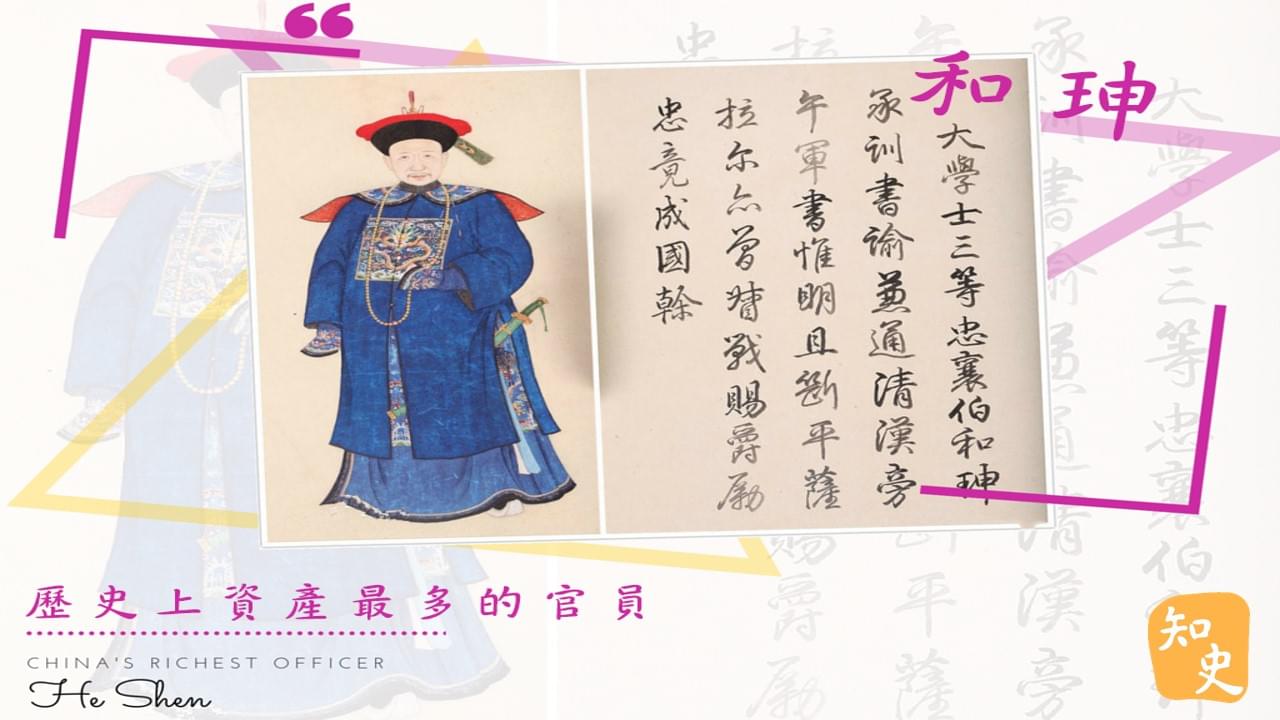 和珅
大學士三等忠襄伯和珅
承訓書諭兼通清漢旁
午軍書惟明且斷平薩
拉尔亦曾督戰賜爵勵
忠竟成國幹
歷史上資產最多的官員
CHINA'S RICHEST OFFICER
He Shen
知史